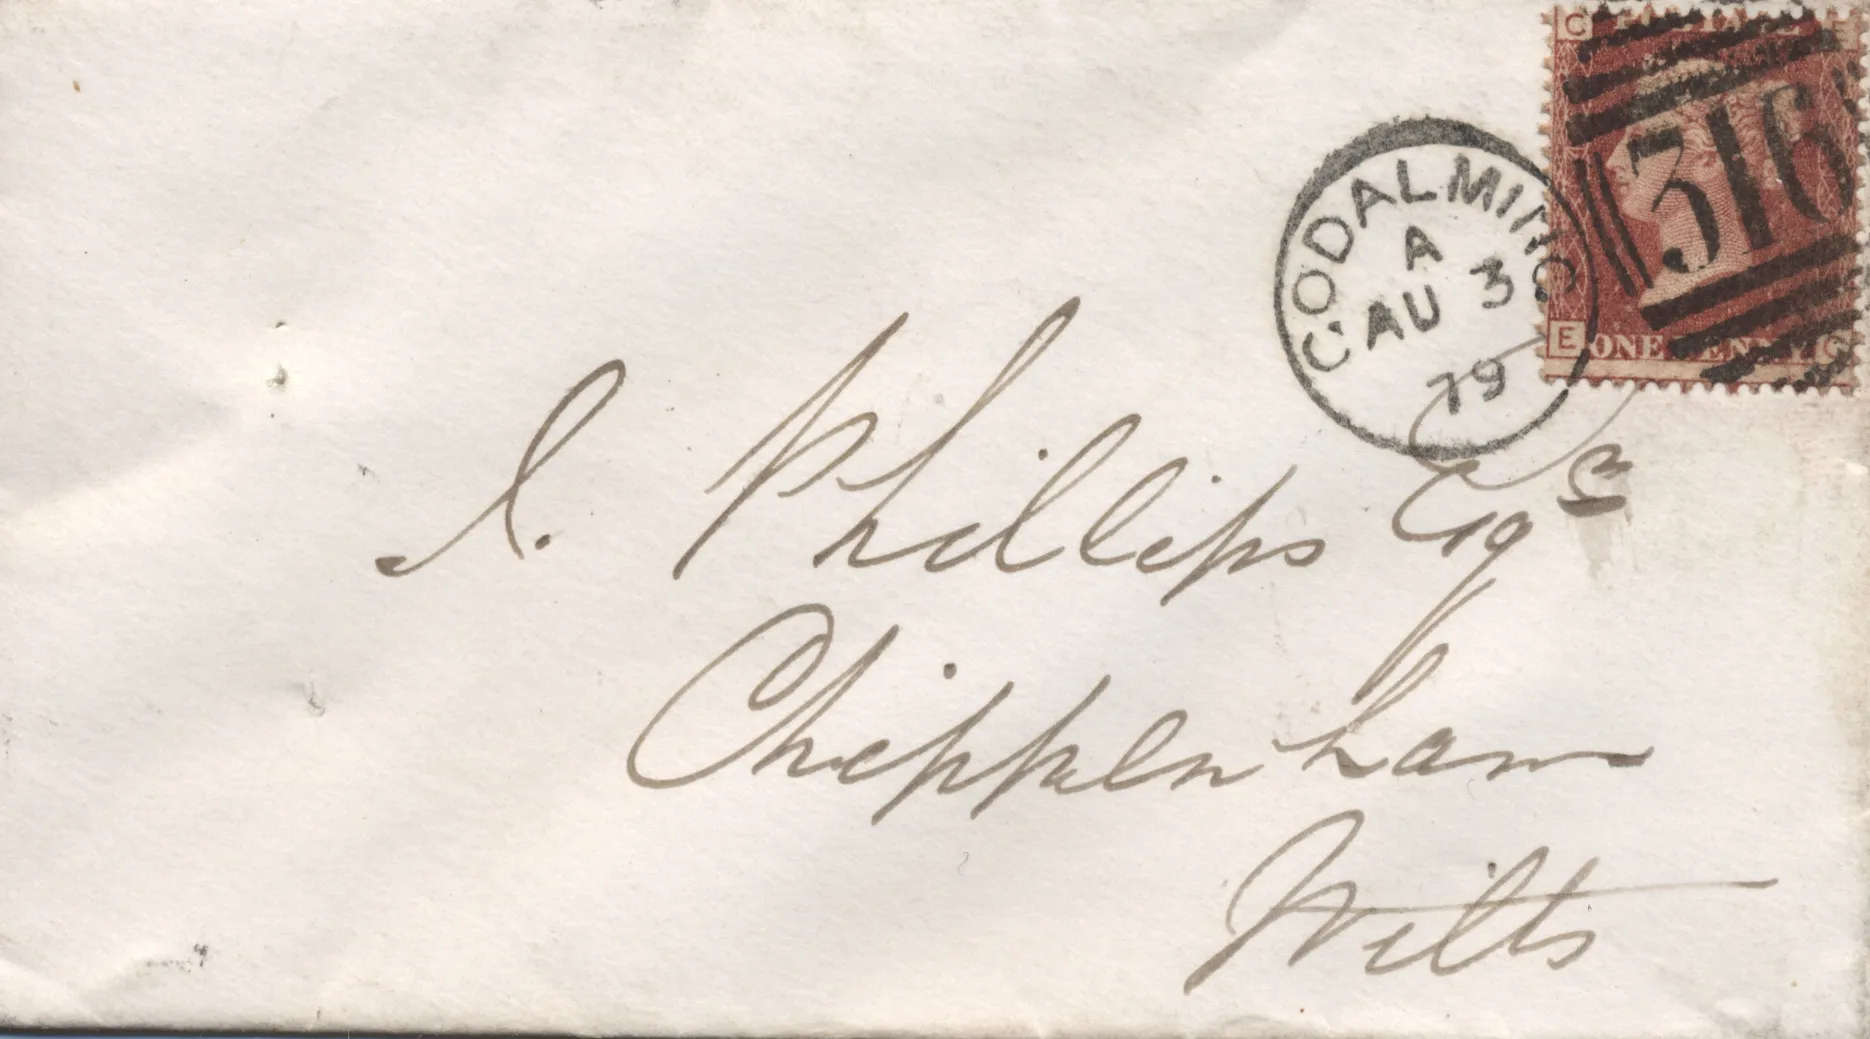 G E
POSTAGE
316
GODALMING
A
AU 3
79
E ONE PENNY G
J. Phillips Esqre
Chippenham
Wilts